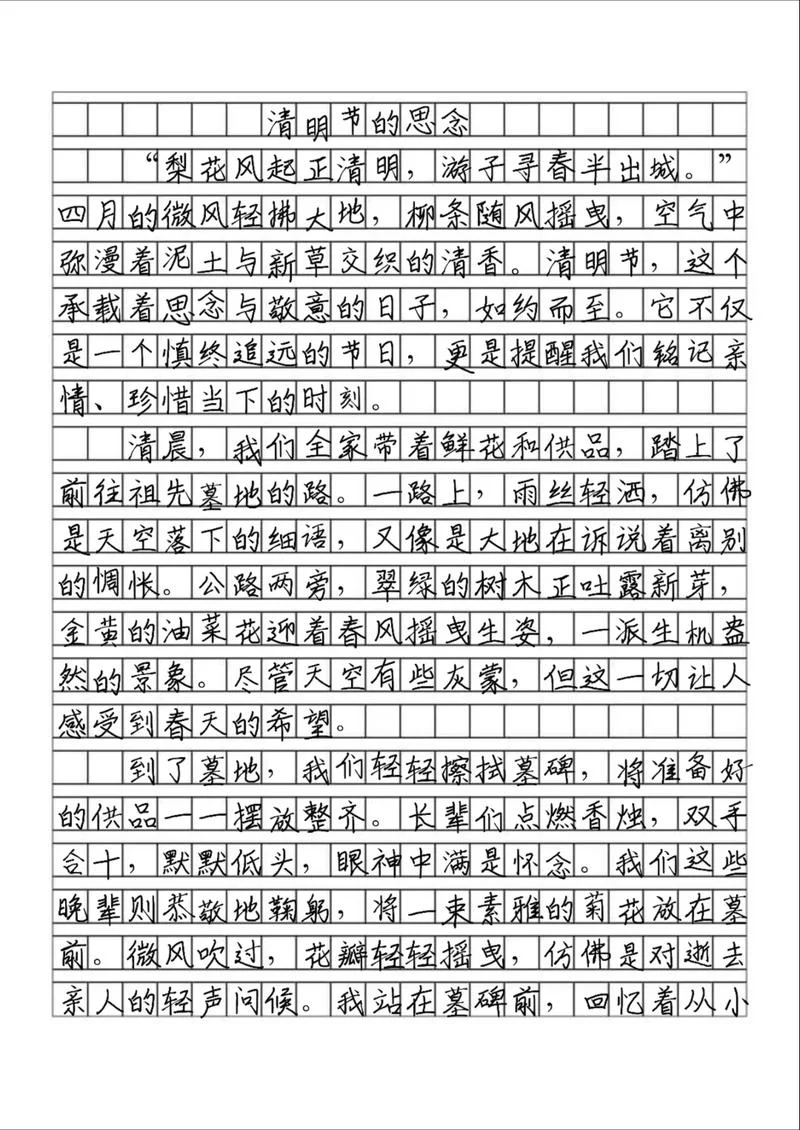 清明节的思念
“梨花风起正清明，游子寻春半出城。”
四月的微风轻拂大地，柳条随风摇曳，空气中
弥漫着泥土与新草交织的清香。清明节，这个
承载着思念与敬意的日子，如约而至。它不仅
是一个慎终追远的节日，更是提醒我们铭记亲
情、珍惜当下的时刻。
清晨，我们全家带着鲜花和供品，踏上了
前往祖先墓地的路。一路上，雨丝轻洒，仿佛
是天空落下的细语，又像是大地在诉说着离别
的惆怅。公路两旁，翠绿的树木正吐露新芽，
金黄的油菜花迎着春风摇曳生姿，一派生机盎
然的景象。尽管天空有些灰蒙，但这一切让人
感受到春天的希望。
到了墓地，我们轻轻擦拭墓碑，将准备好
的供品一一摆放整齐。长辈们点燃香烛，双手
合十，默默低头，眼神中满是怀念。我们这些
晚辈则恭敬地鞠躬，将一束素雅的菊花放在墓
前。微风吹过，花瓣轻轻摇曳，仿佛是对逝去
亲人的轻声问候。我站在墓碑前，回忆着从小